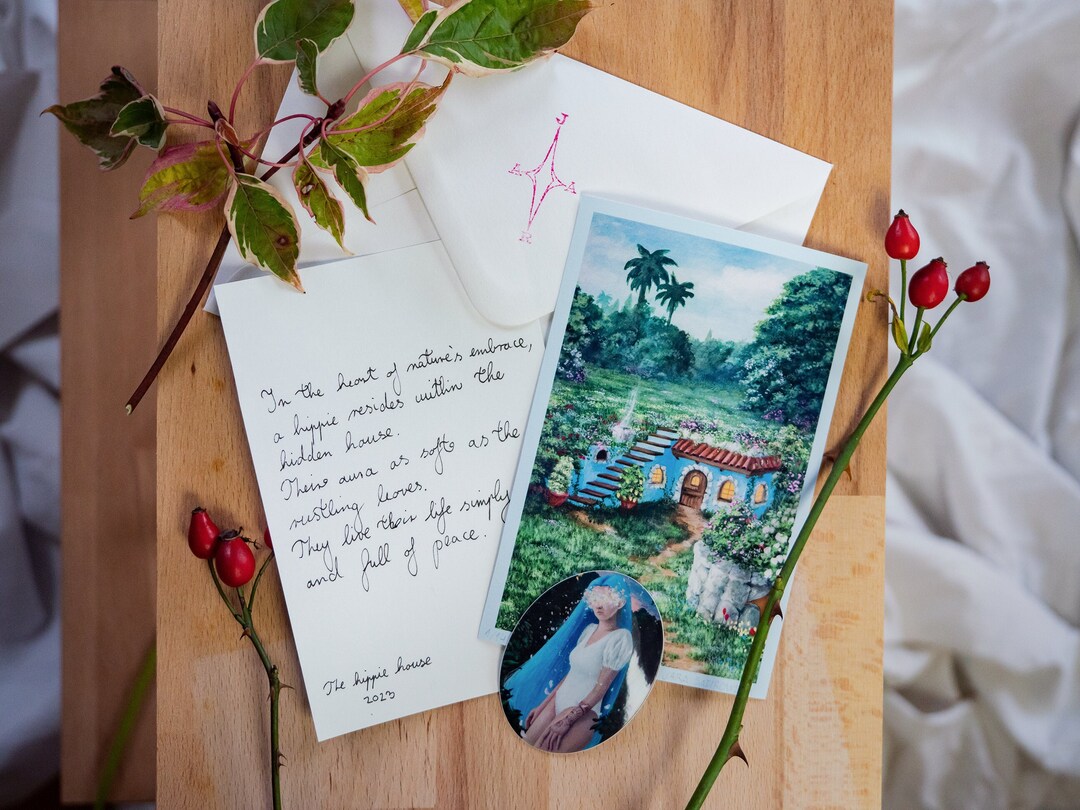 J
A A
R
In the heart of nature's embrace,
a hippie resides within the
hidden house.
Their aura as soft as the
rustling leaves.
They live their life simply
and full of peace.
The hippie house
2023